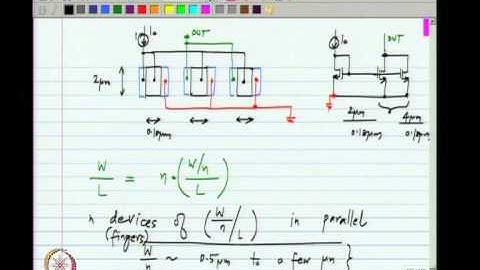 I₀ OUT I₀ OUT
2μm
0.18μm
2μm / 0.18μm 4μm / 0.18μm
W/L = n · ( (W/n) / L )
n devices of ( W/n / L ) in parallel
(fingers)
W/n ~ 0.5μm to a few μm }